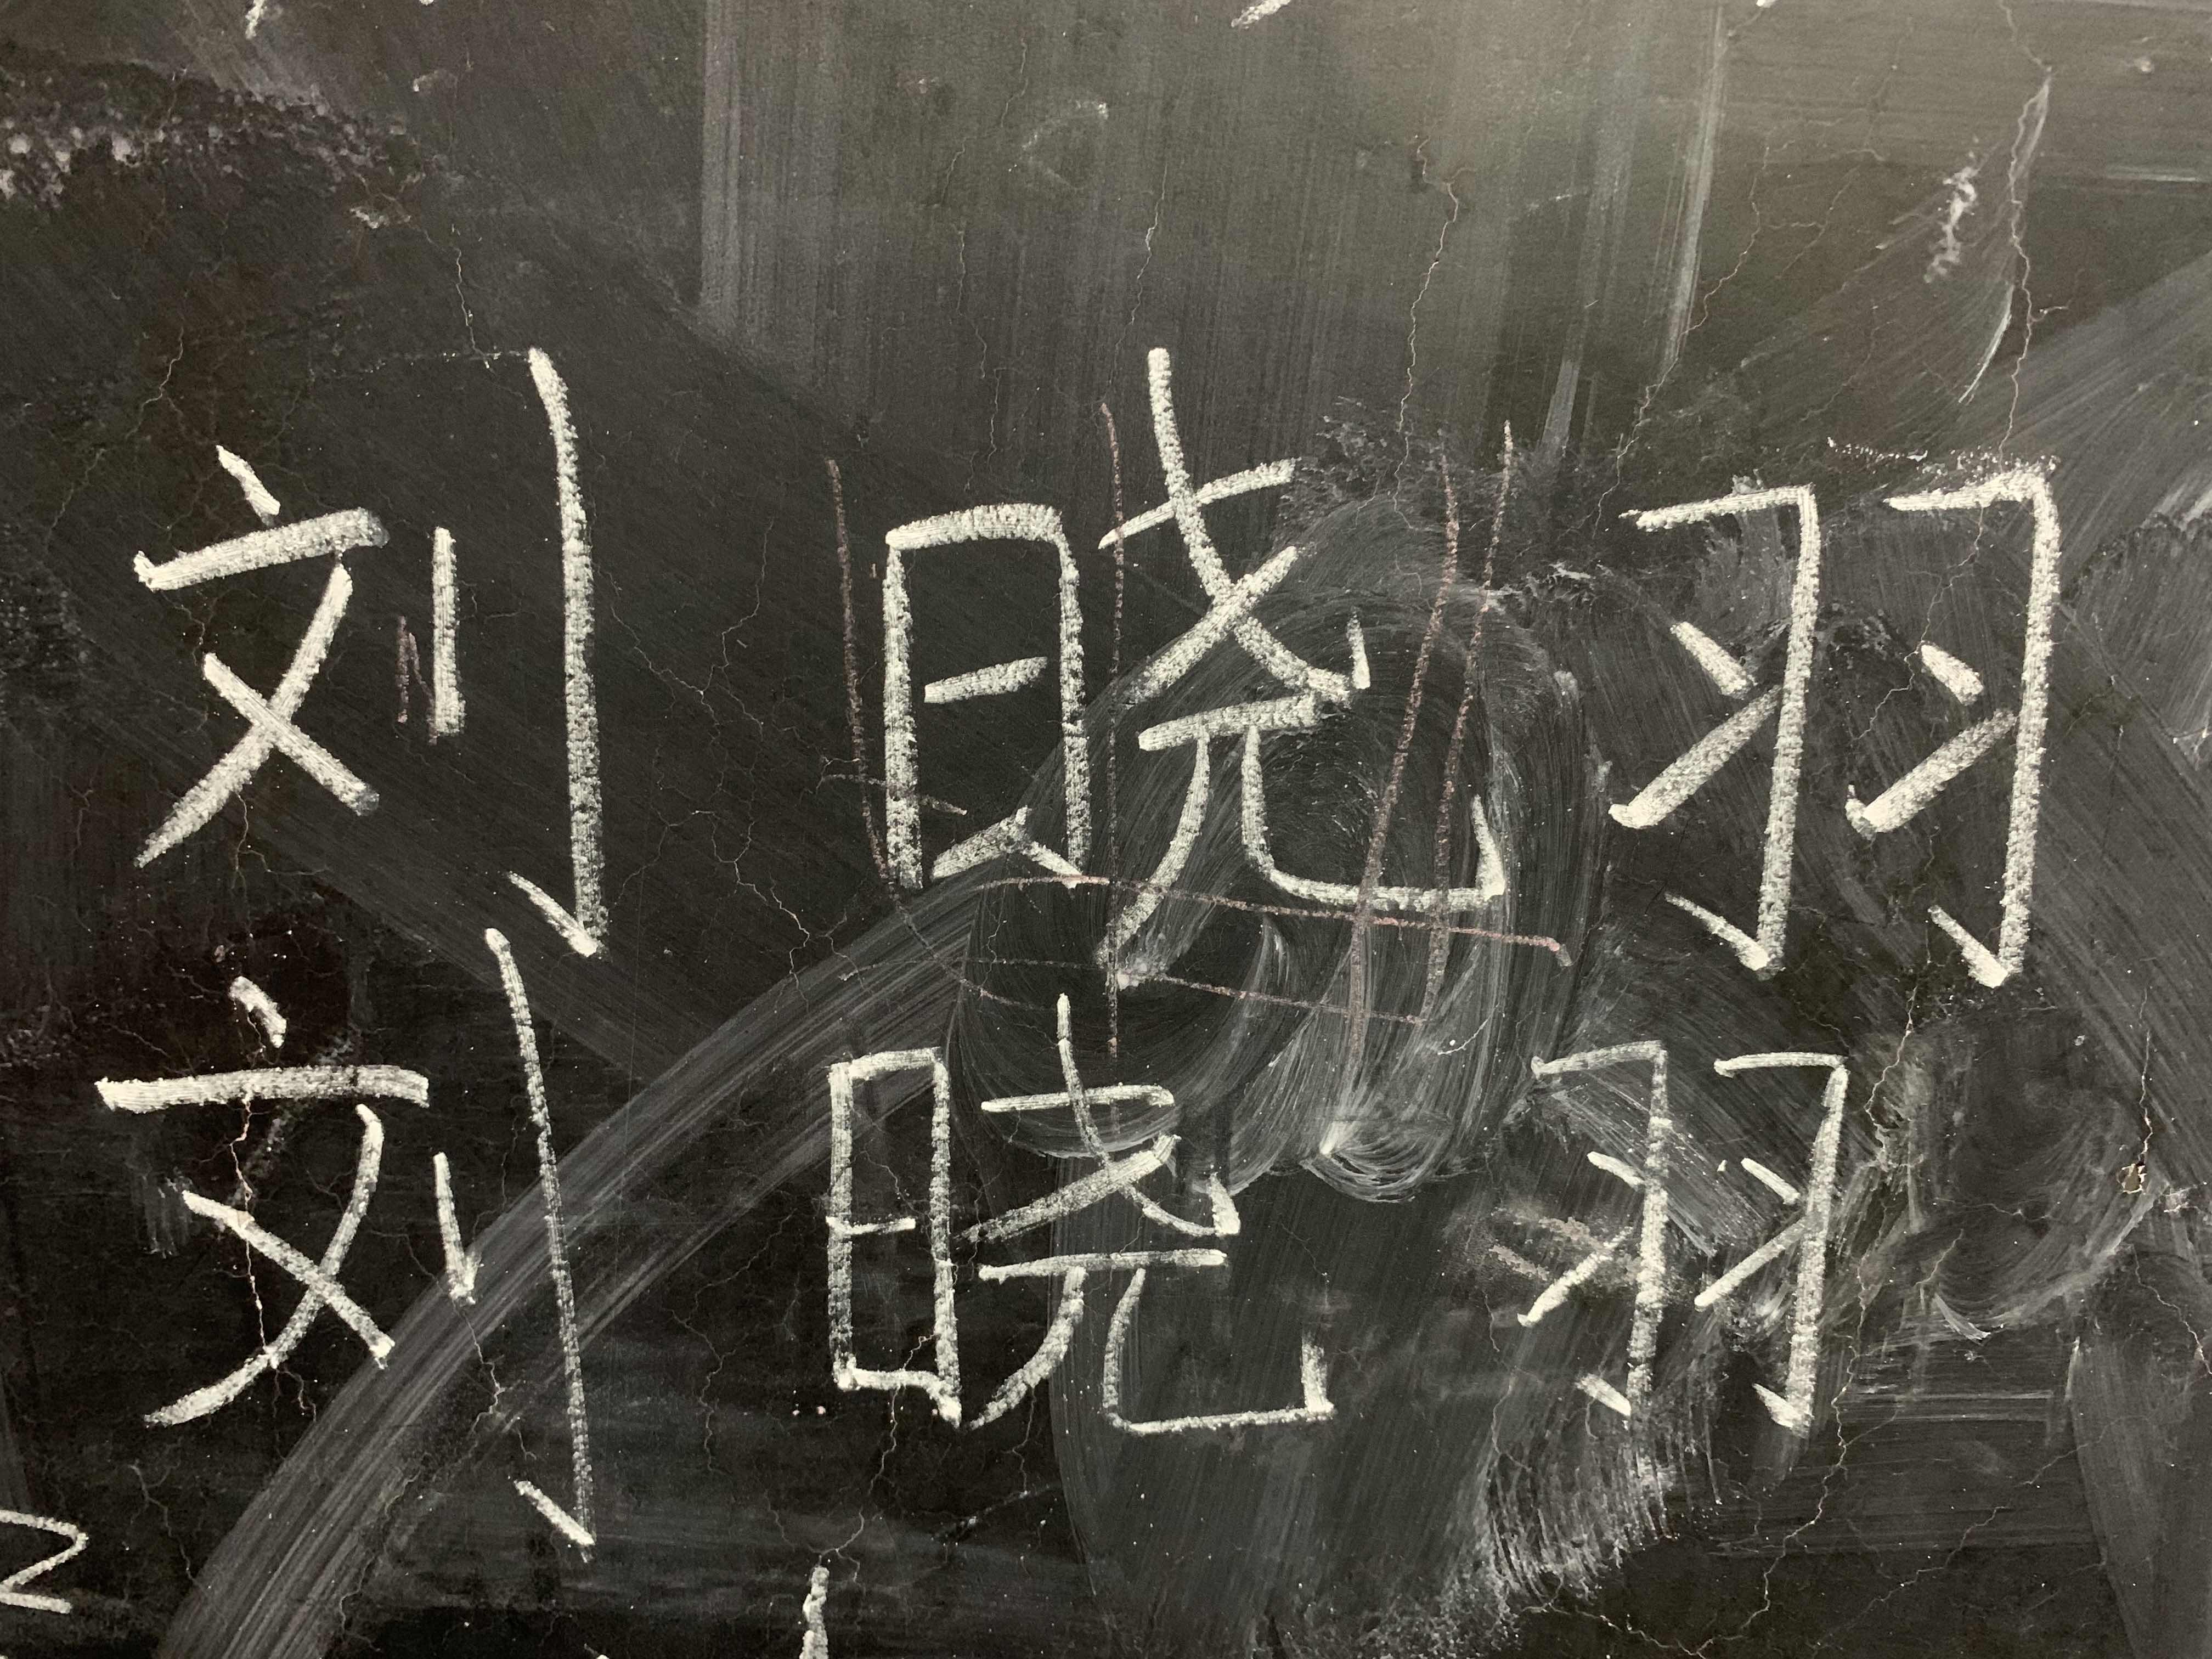 刘晓羽
刘晓羽